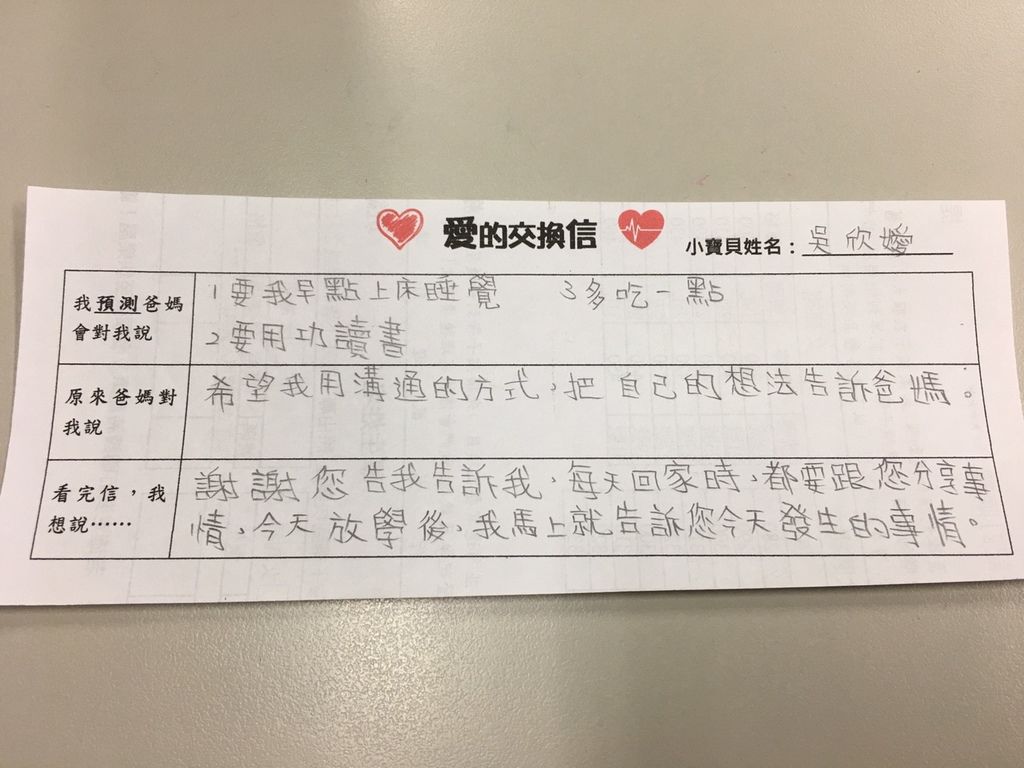 愛的交換信
小寶貝姓名：吳欣嬡
我預測爸媽
會對我說
1要我早點上床睡覺 3多吃一點
2要用功讀書
原來爸媽對
我說
希望我用溝通的方式，把自己的想法告訴爸媽。
看完信，我
想說……
謝謝您告我告訴我，每天回家時，都要跟您分享事
情，今天放學後，我馬上就告訴您今天發生的事情。